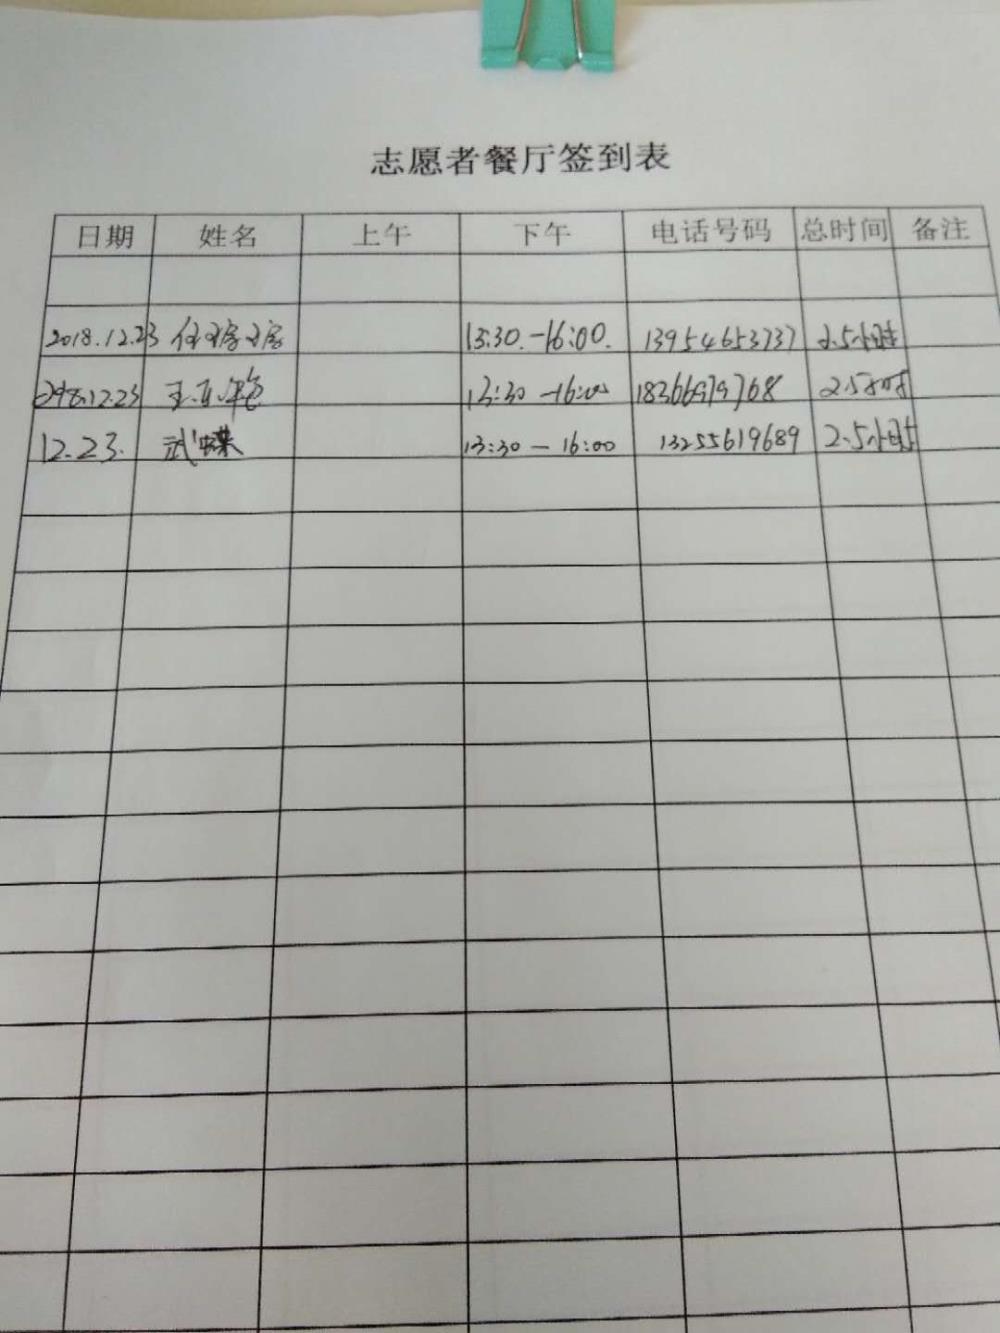 志愿者餐厅签到表
日期 姓名 上午 下午 电话号码 总时间 备注
2018.12.23 13:30.-16:00. 13954653737 2.5小时
2018.12.23 13:30 -16:00 18366979768 2.5小时
12.23. 武蝶 13:30 - 16:00 13255619689 2.5小时